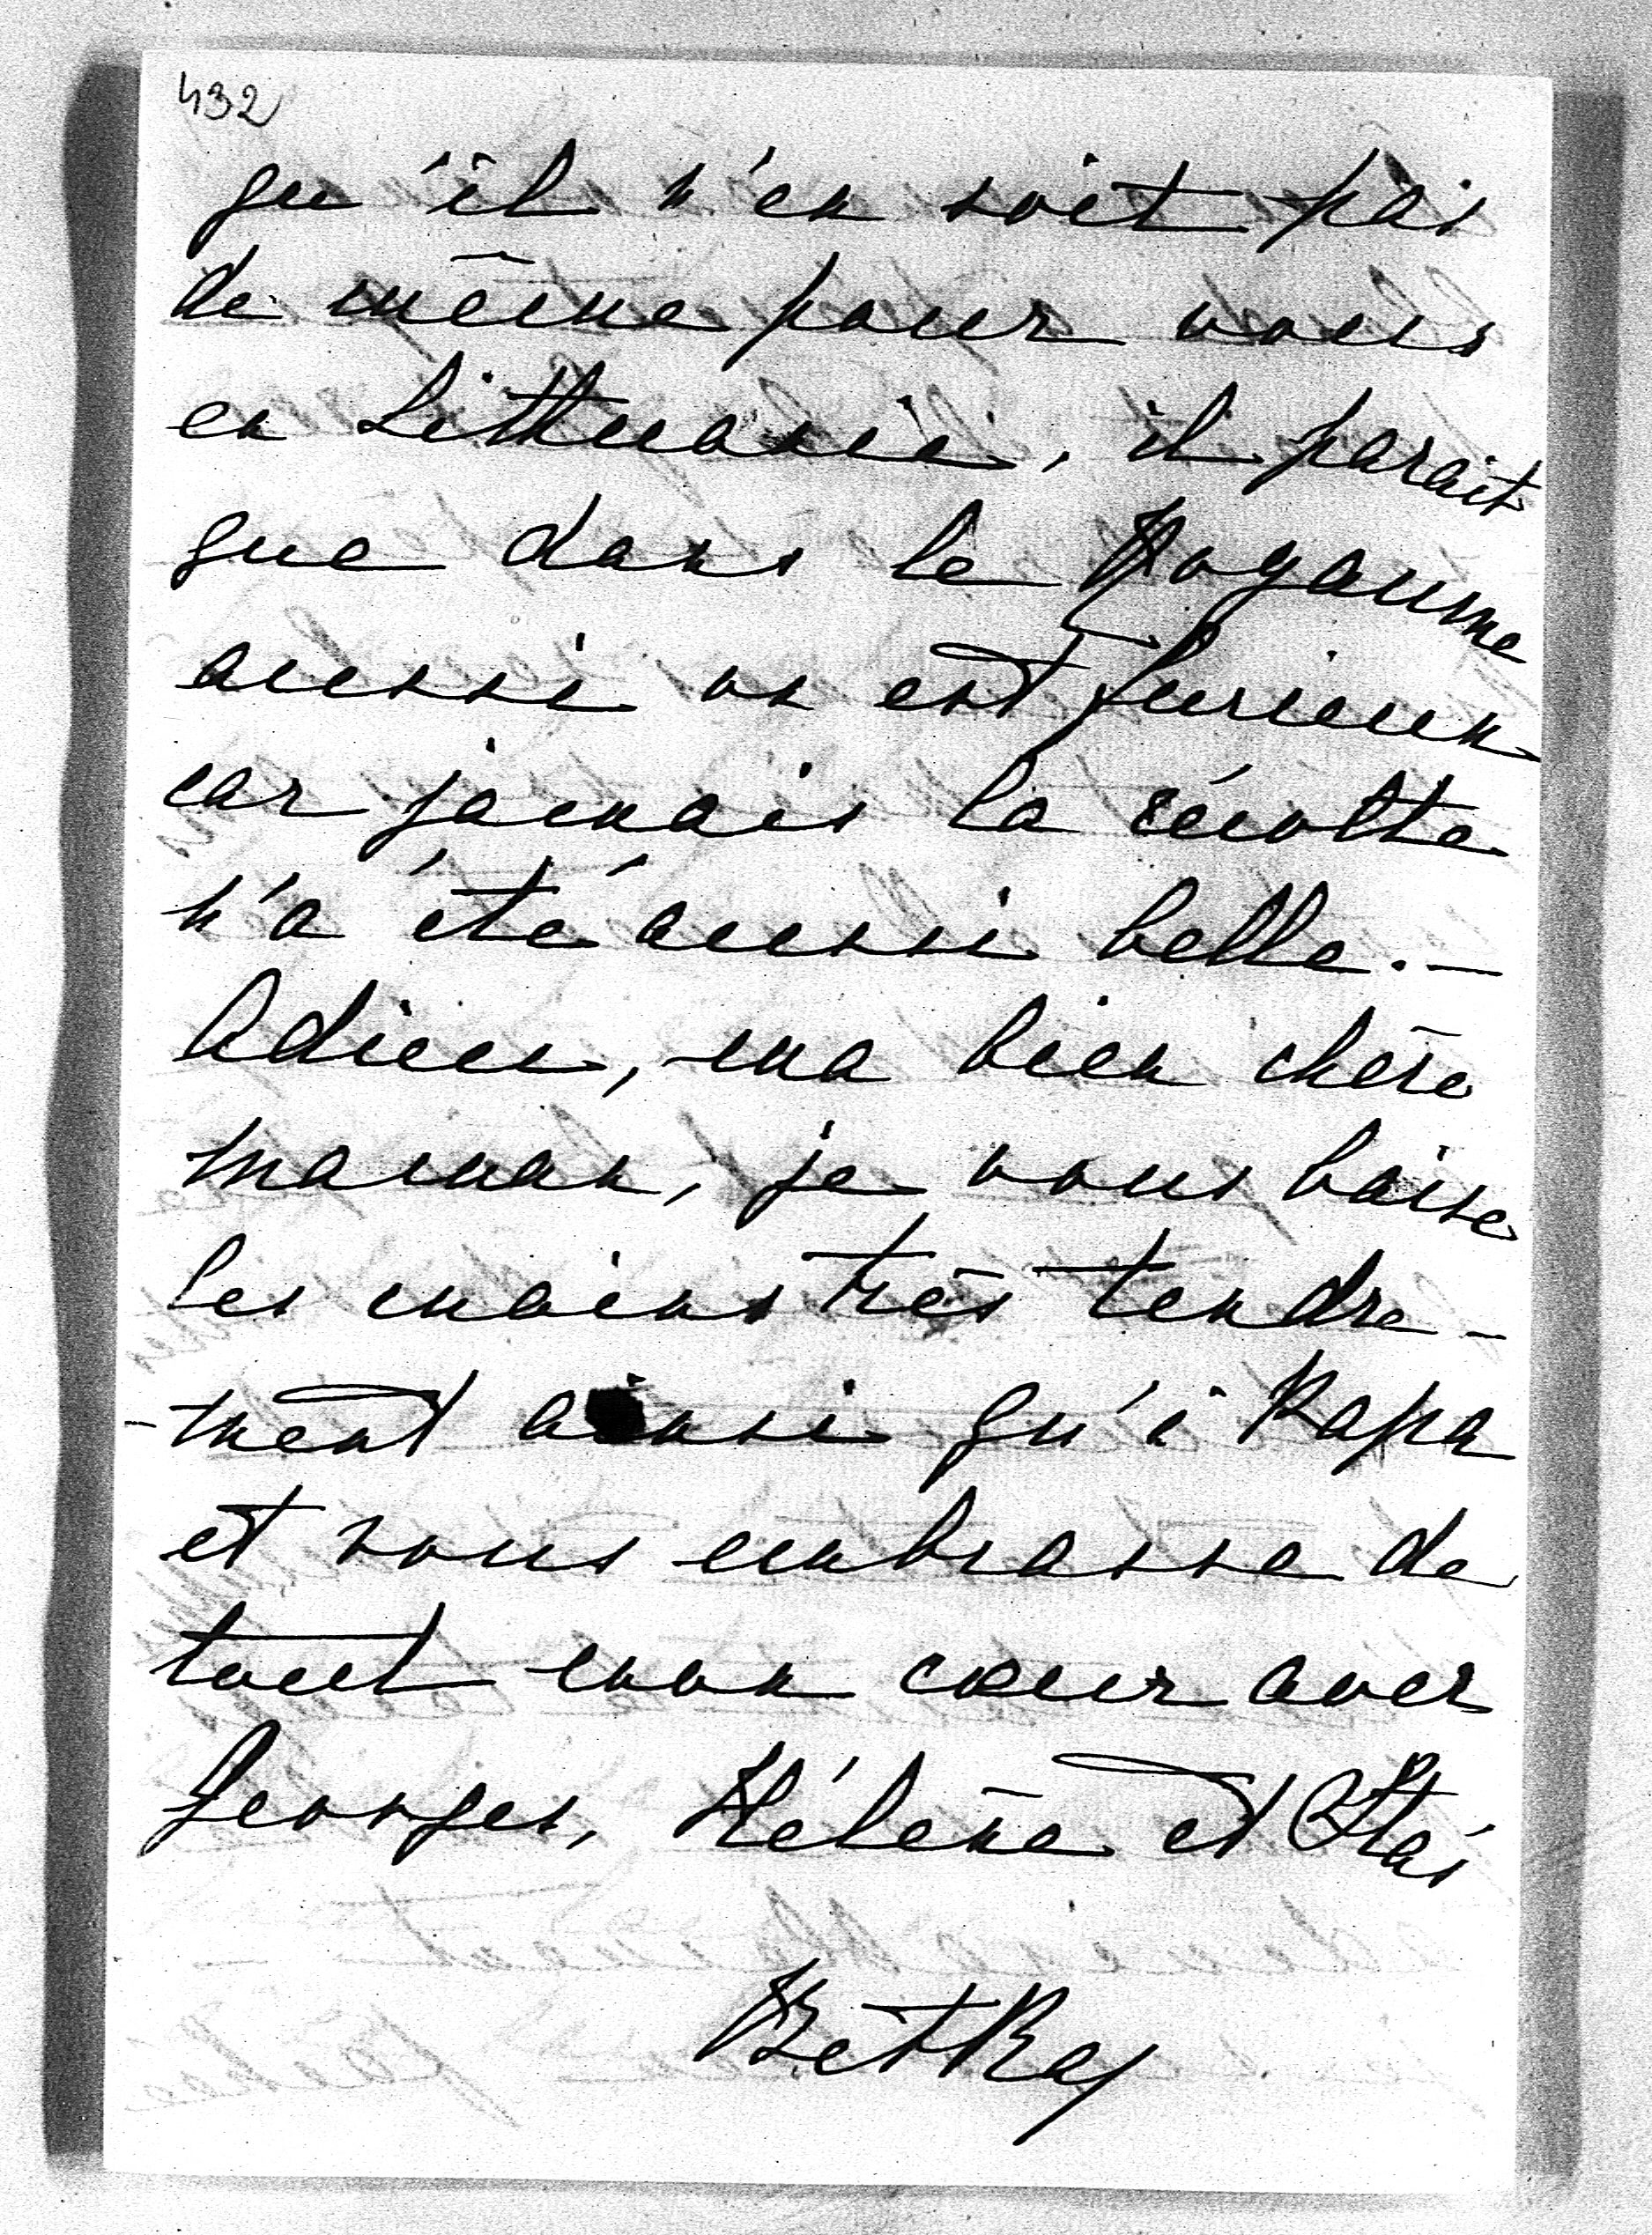 432
qu'il n'en soit pas
de même pour vous
en Litthuanie, il parait
que dans le Royaume
aussi on est furieux
car jamais la récolte
n'a été aussi belle. —
Adieu, ma bien chère
maman, je vous baise
les mains très tendre-
-ment ainsi qu'à Papa
et vous embrasse de
tout mon cœur avec
Georges, Hélène et Staś
BetKa